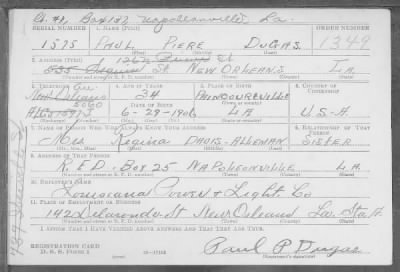 Rt. #1, Box 187 Napoleonville, La.
SERIAL NUMBER 1. NAME (Print) ORDER NUMBER
1575 PAUL PIERE DUGAS 1349
(First) (Middle) (Last)
2. ADDRESS (Print)
St NEW ORLEANS LA.
3. TELEPHONE 4. AGE IN YEARS 5. PLACE OF BIRTH 6. COUNTRY OF CITIZENSHIP
34 PAINCOURTVILLE
DATE OF BIRTH
6-29-1906 LA U-S-A.
7. NAME OF PERSON WHO WILL ALWAYS KNOW YOUR ADDRESS 8. RELATIONSHIP OF THAT PERSON
Mrs Regina DAVIS-ALLEMAN SISTER
9. ADDRESS OF THAT PERSON
R.F.D. BOX 25 NAPOLEONVILLE LA.
10. EMPLOYER'S NAME
Louisiana Power & Light. Co
11. PLACE OF EMPLOYMENT OR BUSINESS
142 Delaronde-St New Orleans La. Sta A.
I AFFIRM THAT I HAVE VERIFIED ABOVE ANSWERS AND THAT THEY ARE TRUE.
REGISTRATION CARD
D. S. S. Form 1
Paul P. Dugas